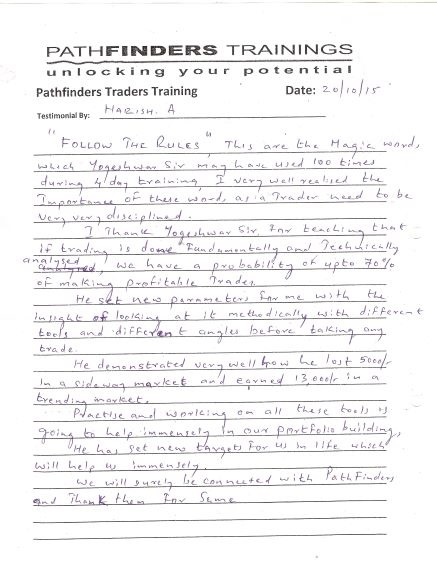 PATHFINDERS TRAININGS
unlocking your potential
Pathfinders Traders Training Date: 20/10/15
Testimonial By: HARISH. A
"FOLLOW THE RULES", This are the Magic word,
which Yogeshwar Sir may have used 100 times
during 4 day training, I very well realised the
Importance of these word, as a Trader need to be
very very disciplined.
I Thank Yogeshwar Sir, For teaching that
if trading is done Fundamentally and Technically
analysed, we have a probability of upto 70%
of making profitable Trades
He set new parameters for me with the
insight of looking at it methodically with different
tools and different angles before taking any
trade.
He demonstrated very well how he lost 5000/-
in a sideway market and earned 13,000/- in a
trending market,
Practise and working on all these tools is
going to help immensely in our portfolio building,
He has set new targets for us in life which
will help us immensely.
We will surely be connected with PathFinders
and Thank them For Same